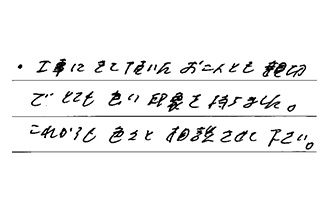 ・工事にきて頂いたお二人とも親切
でとても良い印象を持ちました。
これからも色々と相談させて下さい。